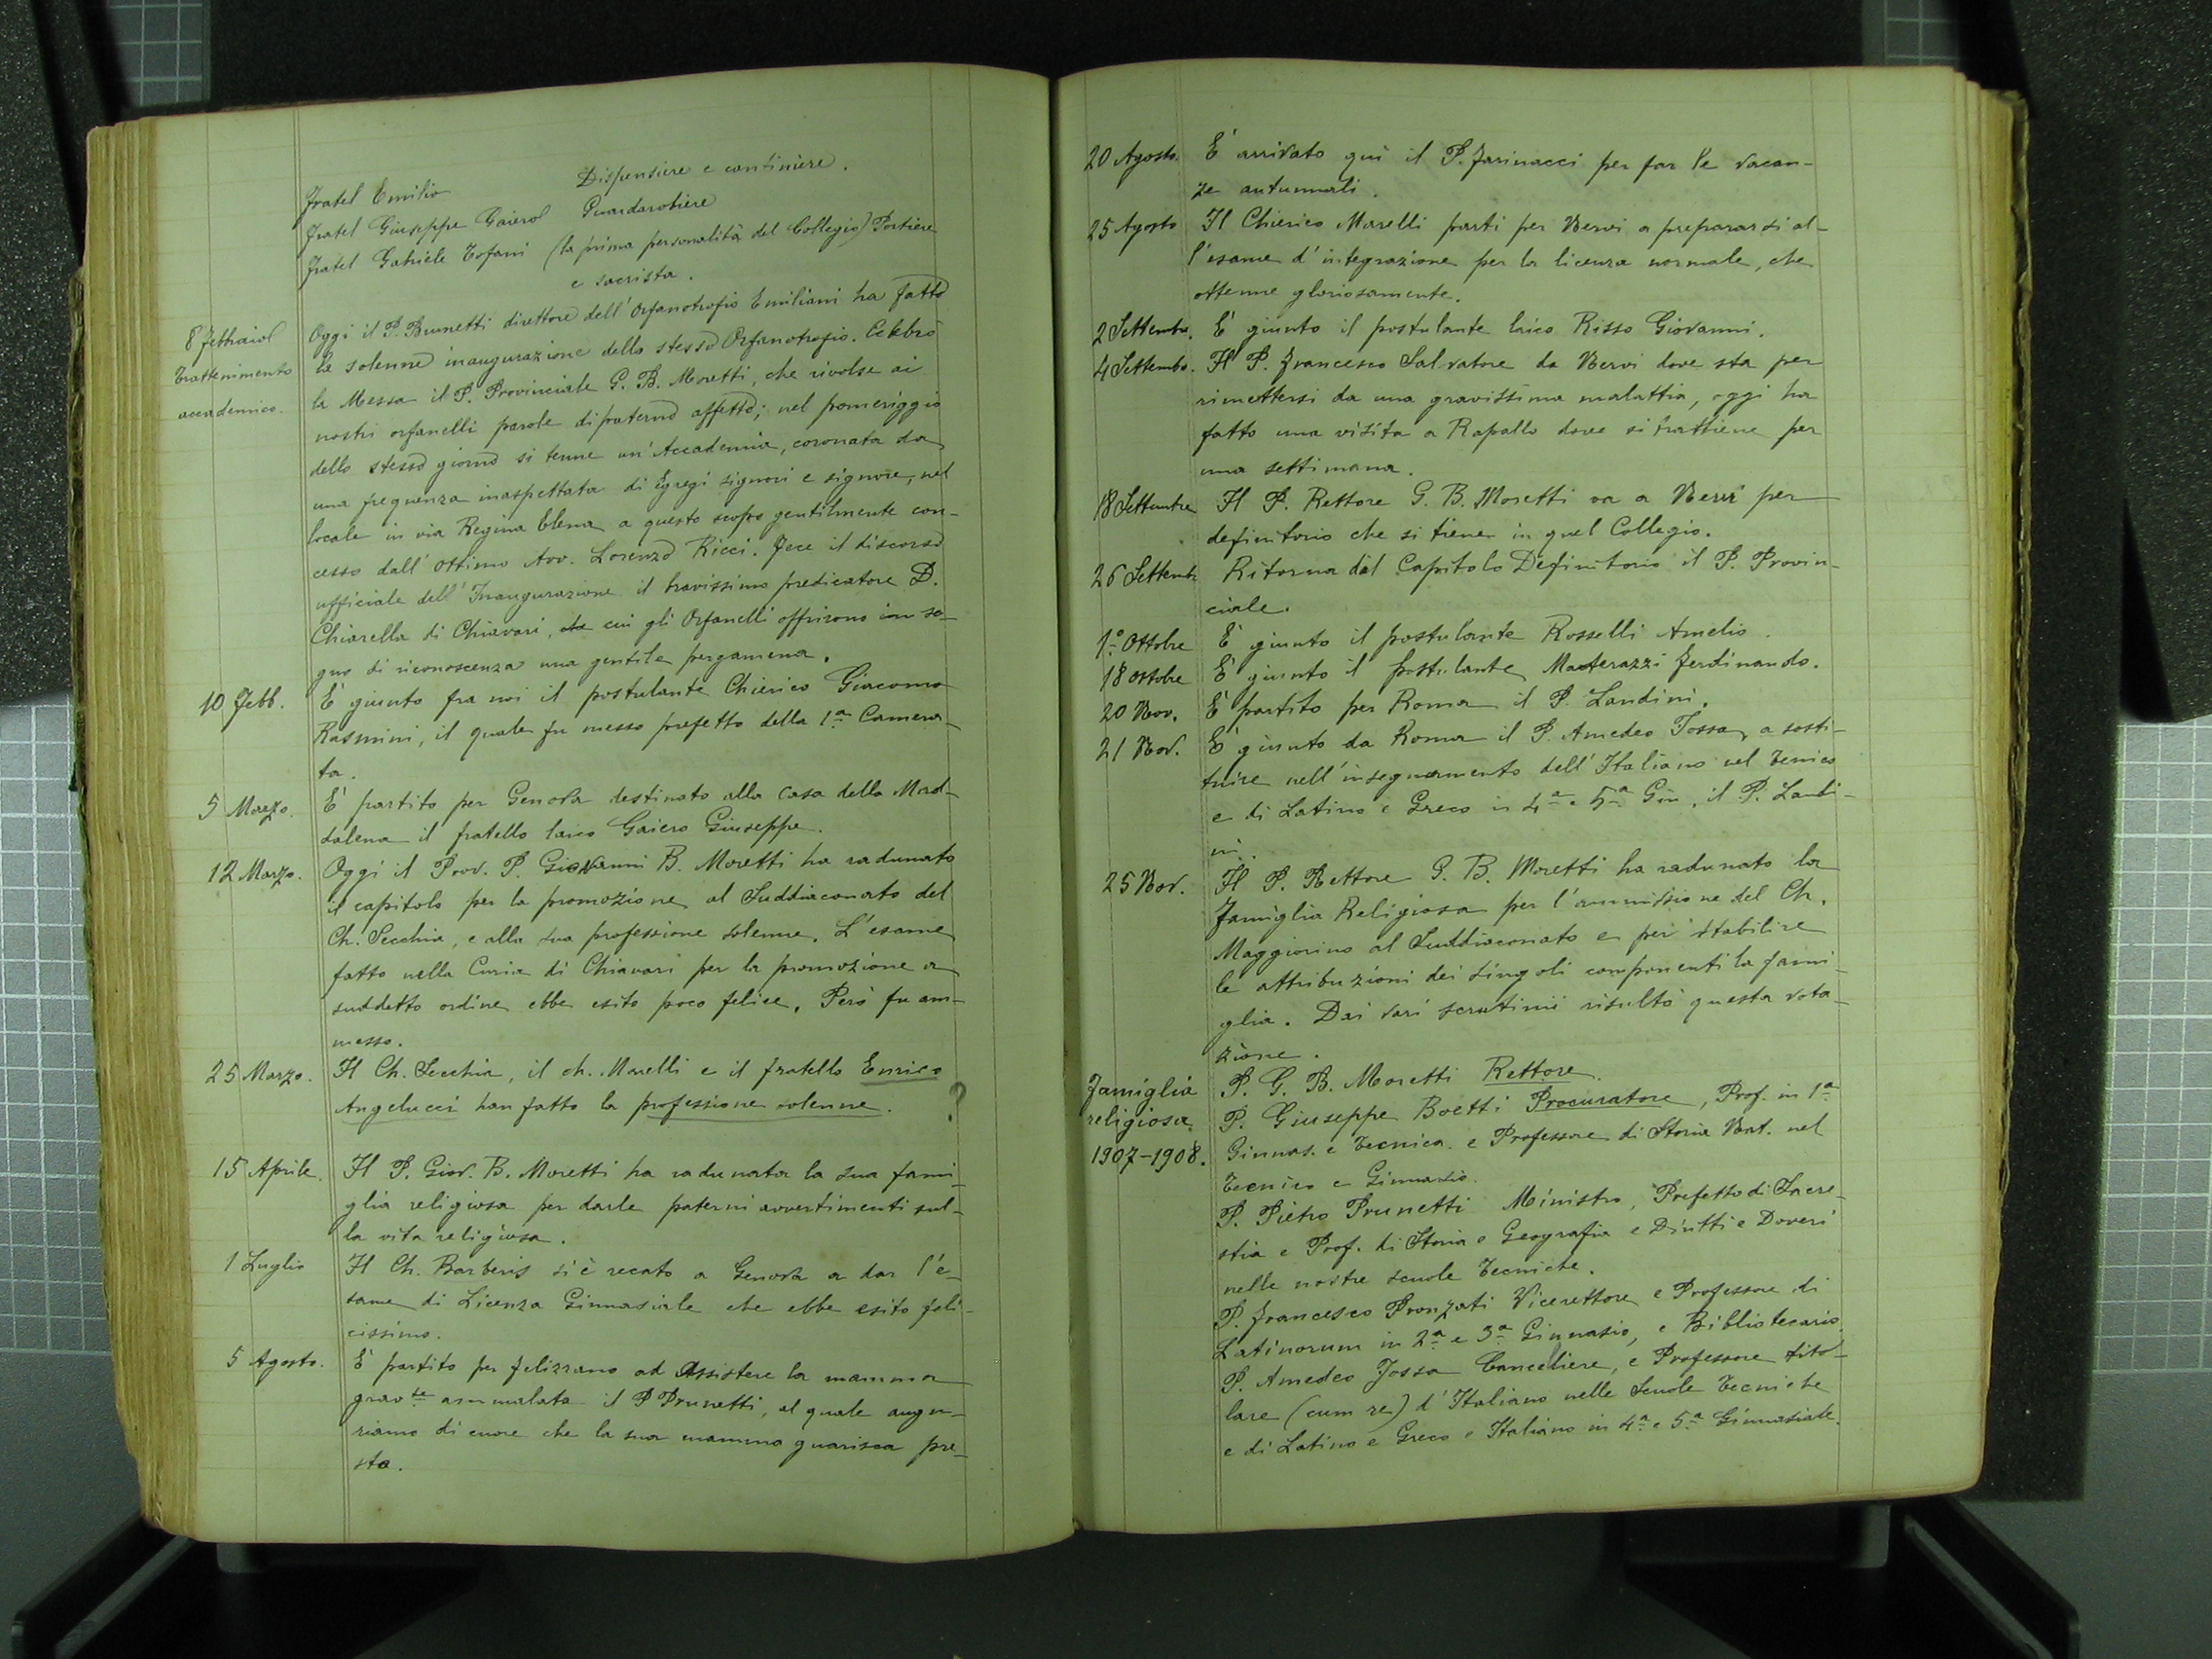 Fratel Emilio Dispensiere e cantiniere.
Fratel Giuseppe Gaiero Guardarobiere
Fratel Gabriele Tofani (la prima personalità del Collegio) Portiere
e sacrista.
8 Febbraio Oggi il P. Brunetti direttore dell'Orfanotrofio Emiliani ha fatto
Trattenimento la solenne inaugurazione dello stesso Orfanotrofio. Celebrò
accademico. la Messa il P. Provinciale G. B. Moretti, che rivolse ai
nostri orfanelli parole di paterno affetto; nel pomeriggio
dello stesso giorno si tenne un'Accademia, coronata da
una frequenza inaspettata di Egregi signori e signore, nel
locale in via Regina Elena a questo scopo gentilmente con-
cesso dall'ottimo Avv. Lorenzo Ricci. Fece il discorso
ufficiale dell'Inaugurazione il bravissimo predicatore D.
Chiarella di Chiavari, cui gli Orfanelli offrirono in se-
gno di riconoscenza una gentile pergamena.
10 Febb. È giunto fra noi il postulante Chierico Giacomo
Rasmini, il quale fu messo prefetto della 1ª Camera-
ta.
5 Marzo. È partito per Genova destinato alla Casa della Mad-
dalena il fratello laico Gaiero Giuseppe.
12 Marzo. Oggi il Prov. P. Giovanni B. Moretti ha radunato
il capitolo per la promozione al Suddiaconato del
Ch. Secchia, e alla sua professione solenne. L'esame
fatto nella Curia di Chiavari per la promozione a
suddetto ordine ebbe esito poco felice. Però fu am-
messo.
25 Marzo. Il Ch. Secchia, il ch. Marelli e il fratello Enrico
Angelucci han fatto la professione solenne. ?
15 Aprile. Il P. Giov. B. Moretti ha radunata la sua fami-
glia religiosa per darle paterni avvertimenti sul-
la vita religiosa.
1 Luglio Il Ch. Barberis si è recato a Genova a dar l'e-
same di Licenza Ginnasiale che ebbe esito feli-
cissimo.
5 Agosto. È partito per Felizzano ad assistere la mamma
grav.te ammalata il P Prunetti, al quale augu-
riamo di cuore che la sua mamma guarisca pre-
sto.
20 Agosto. È arrivato qui il P. Farinacci per far le vacan-
ze autunnali.
25 Agosto Il Chierico Marelli partì per Nervi a prepararsi al-
l'esame d'integrazione per la licenza normale, che
ottenne gloriosamente.
2 Settembre. È giunto il postulante laico Risso Giovanni.
4 Settembre. Il P. Francesco Salvatore da Nervi dove sta per
rimettersi da una gravissima malattia, oggi ha
fatto una visita a Rapallo dove si trattiene per
una settimana.
18 Settembre Il P. Rettore G. B. Moretti va a Nervi per
definitorio che si tiene in quel Collegio.
26 Settemb. Ritorna dal Capitolo Definitorio il P. Provin-
ciale.
1º Ottobre È giunto il postulante Rosselli Amelio.
18 ottobre È giunto il postulante Materazzi Ferdinando.
20 Nov. È partito per Roma il P. Landini.
21 Nov. È giunto da Roma il P. Amedeo Jossa, a sosti-
tuire nell'insegnamento dell'Italiano nel Tecnico
e di Latino e Greco in 4ª e 5ª Gin., il P. Landi-
ni.
25 Nov. Il P. Rettore G. B. Moretti ha radunato la
Famiglia Religiosa per l'ammissione del Ch.
Maggiorino al Suddiaconato e per stabilire
le attribuzioni dei singoli componenti la fami-
glia. Dai vari scrutinii risultò questa vota-
zione.
Famiglia P. G. B. Moretti Rettore.
religiosa P. Giuseppe Boetti Procuratore, Prof. in 1ª
1907-1908. Ginnas. e Tecnica e Professore di Storia Nat. nel
Tecnico e Ginnasio.
P. Pietro Prunetti Ministro, Prefetto di Sacre-
stia e Prof. di Storia e Geografia e Diritti e Doveri
nelle nostre scuole Tecniche.
P. Francesco Pronzati Vicerettore e Professore di
Latinorum in 2ª e 3ª Ginnasio, e Bibliotecario.
P. Amedeo Jossa Cancelliere, e Professore tito-
lare (cum re) d'Italiano nelle Scuole Tecniche
e di Latino e Greco e Italiano in 4ª e 5ª Ginnasiale.